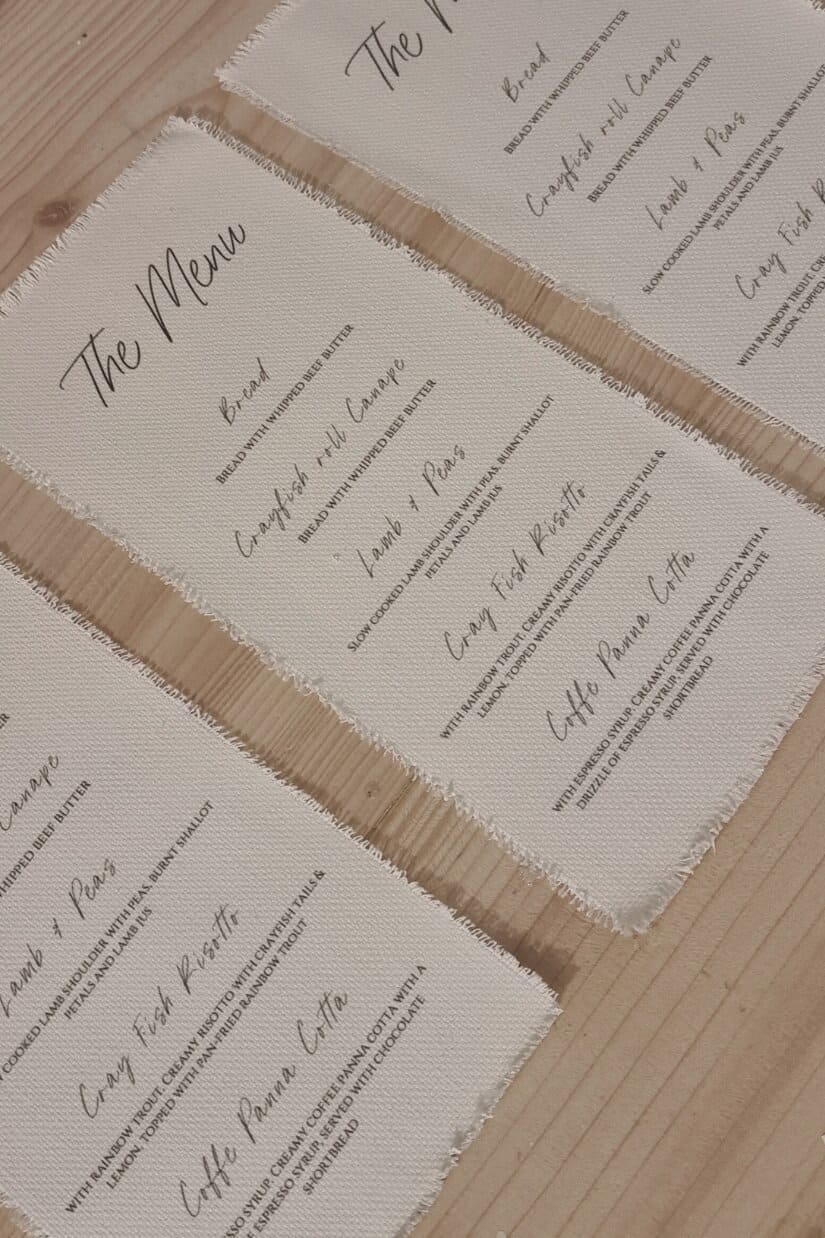 The
Bread
BREAD WITH WHIPPED BEEF BUTTER
Crayfish roll Canape
BREAD WITH WHIPPED BEEF BUTTER
Lamb & Peas
SLOW COOKED LAMB SHOULDER WITH PEAS, BURNT SHALLOT
PETALS AND LAMB JUS
Cray Fish
WITH RAINBOW TROUT,
LEMON, TOPPED
The Menu
Bread
BREAD WITH WHIPPED BEEF BUTTER
Crayfish roll Canape
BREAD WITH WHIPPED BEEF BUTTER
Lamb & Peas
SLOW COOKED LAMB SHOULDER WITH PEAS, BURNT SHALLOT
PETALS AND LAMB JUS
Cray Fish Risotto
WITH RAINBOW TROUT, CREAMY RISOTTO WITH CRAYFISH TAILS &
LEMON, TOPPED WITH PAN-FRIED RAINBOW TROUT
Coffe Panna Cotta
WITH ESPRESSO SYRUP, CREAMY COFFEE PANNA COTTA WITH A
DRIZZLE OF ESPRESSO SYRUP, SERVED WITH CHOCOLATE
SHORTBREAD
Canape
WHIPPED BEEF BUTTER
Lamb & Peas
COOKED LAMB SHOULDER WITH PEAS, BURNT SHALLOT
PETALS AND LAMB JUS
Cray Fish Risotto
WITH RAINBOW TROUT, CREAMY RISOTTO WITH CRAYFISH TAILS &
LEMON, TOPPED WITH PAN-FRIED RAINBOW TROUT
Coffe Panna Cotta
ESPRESSO SYRUP, CREAMY COFFEE PANNA COTTA WITH A
OF ESPRESSO SYRUP, SERVED WITH CHOCOLATE
SHORTBREAD